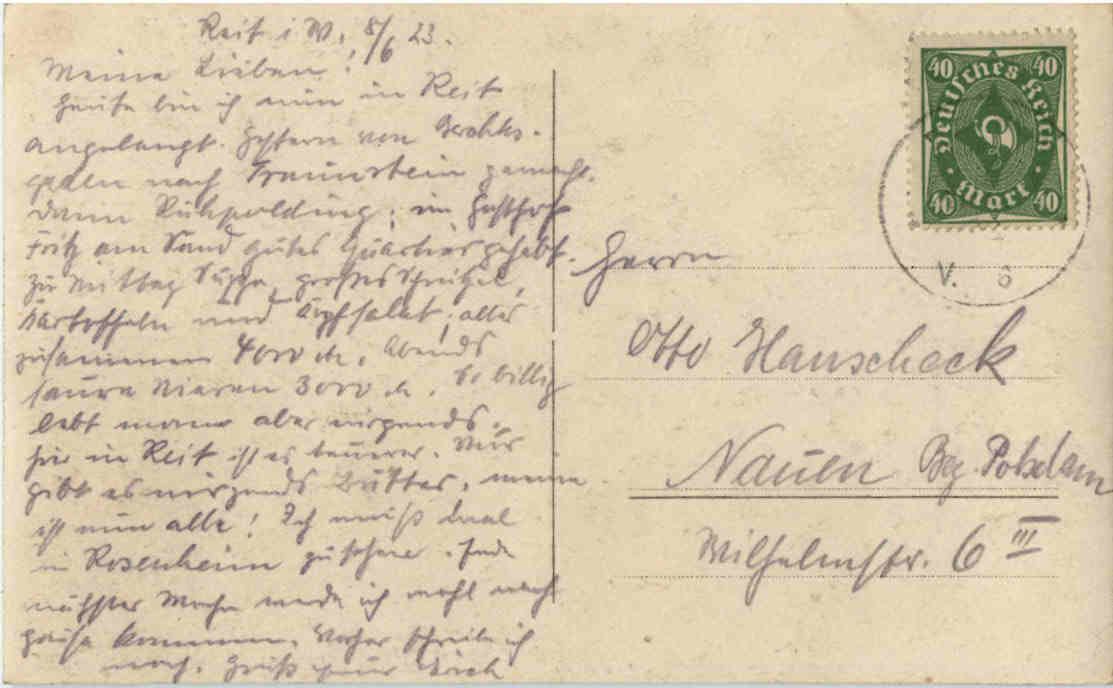 Reit i W. 8/6 23.
Meine Lieben!
Heute bin ich nun in Reit
angelangt. Gestern von Berchtes-
gaden nach Traunstein gemacht.
dann Ruhpolding; im Gasthof
Fritz am Sand gutes Quartier gehabt.
zu Mittag Suppe, großes Schnitzel,
Kartoffeln und Kopfsalat; alles
zusammen 4000 M. Abends
saure Nieren 3000 M. So billig
lebt man aber nirgends.
hier in Reit ist es teuerer. Nur
gibt es nirgends Butter, meine
ist nun alle! Ich muß mal
in Rosenheim zusehen. Ende
nächster Woche werde ich wohl nach
Hause kommen. Vorher schreibe ich
noch. Gruß
Deutsches Reich
40 40
Mark
40 40
V. 8
Herrn
Otto Hanscheck
Nauen Bez. Potsdam
Wilhelmstr. 6 III